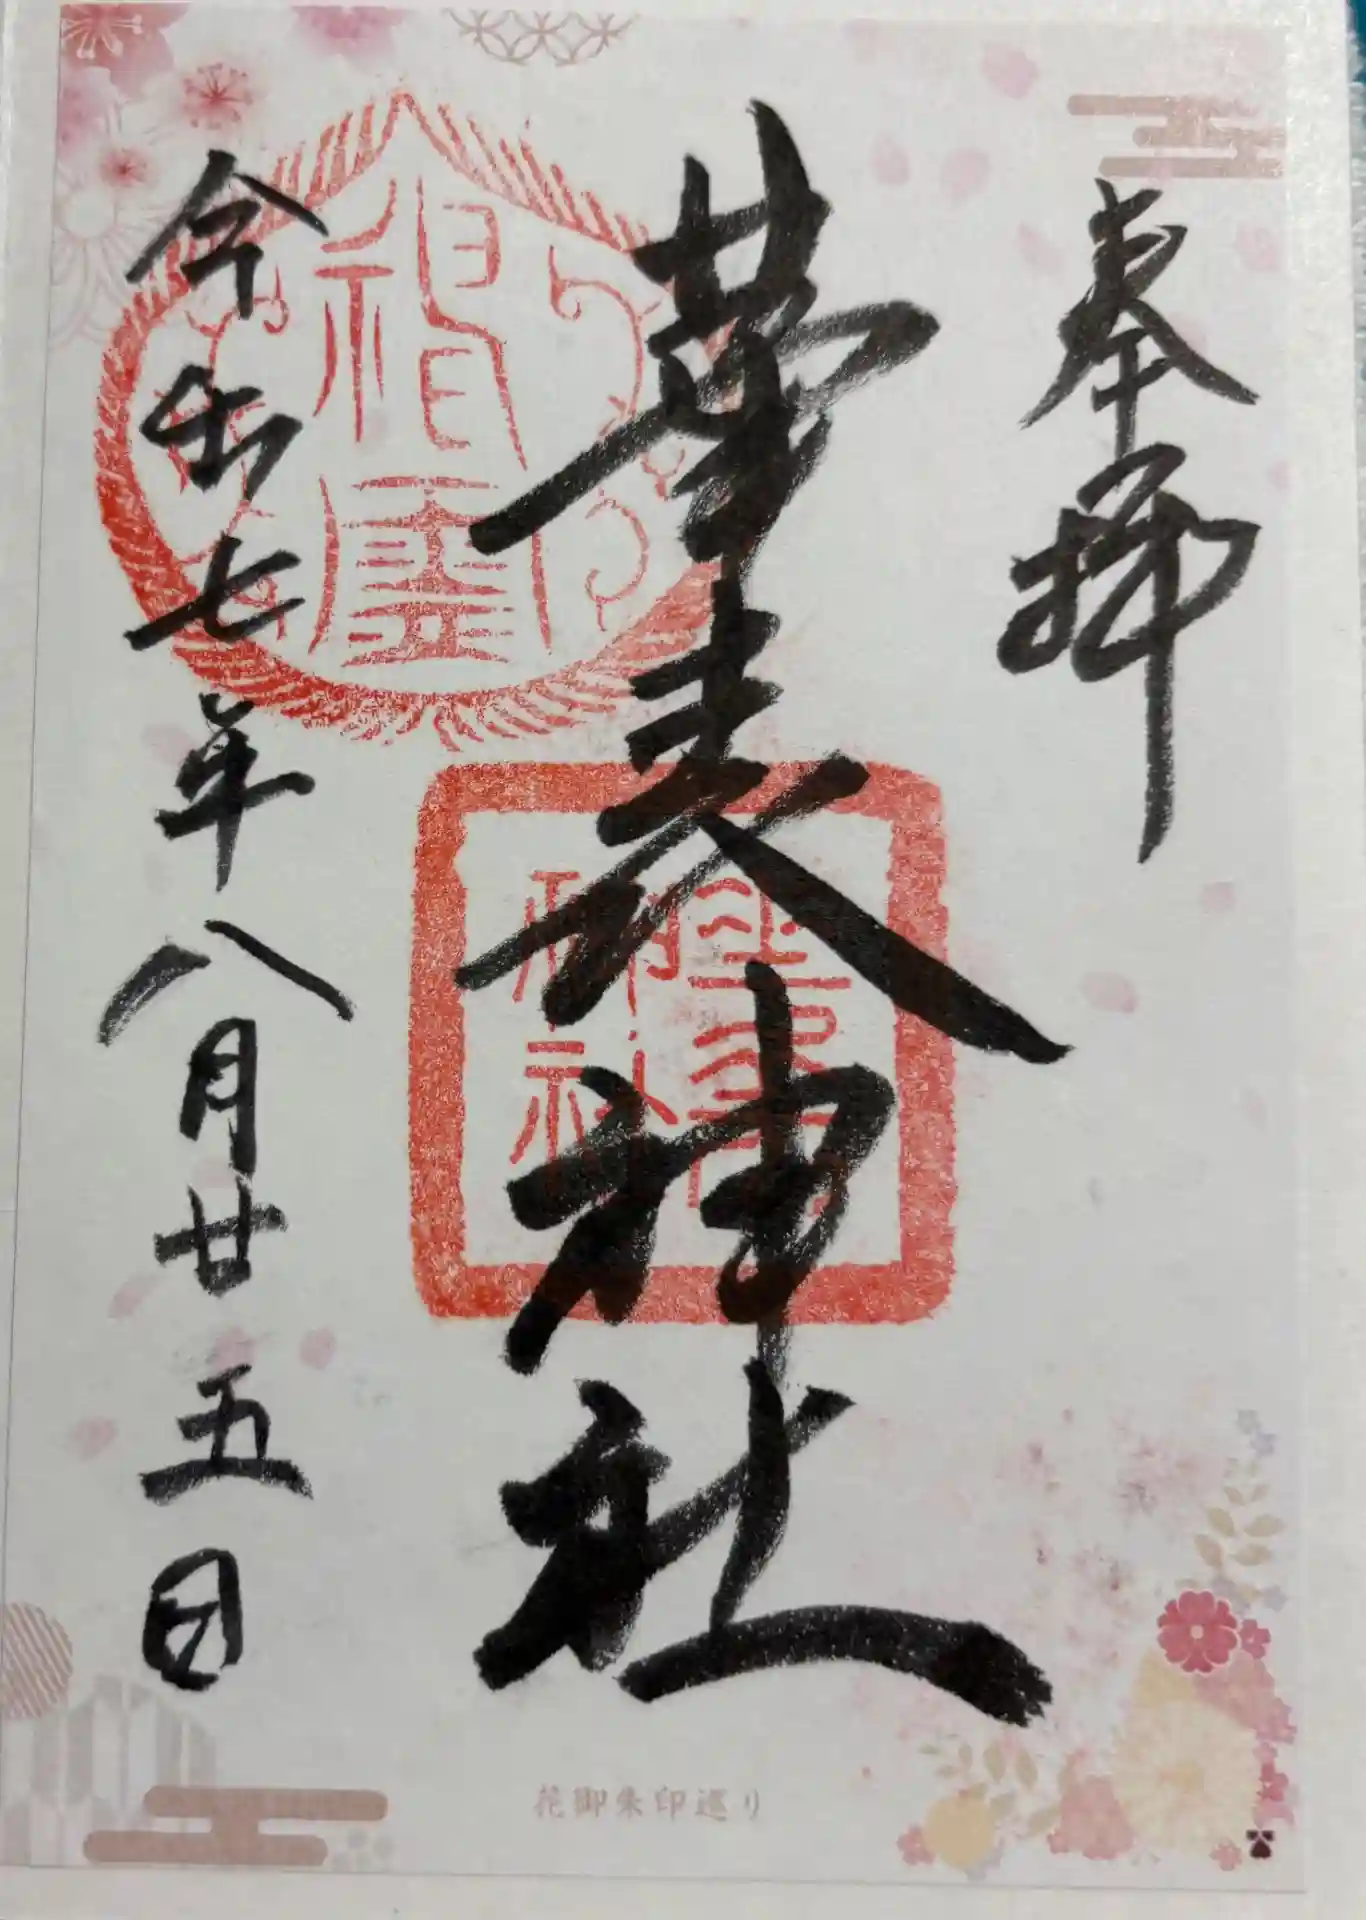 奉拝
華表神社
令和七年八月廿五日
花御朱印巡り